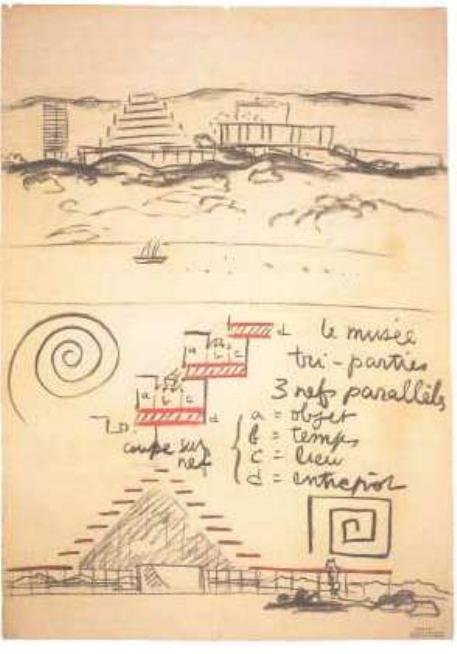 d
a b c
le musée
tri-parties
3 nefs parallèls
a b c
d
a = objet
b = temps
c = lieu
d = entrepôt
coupe sur
nef